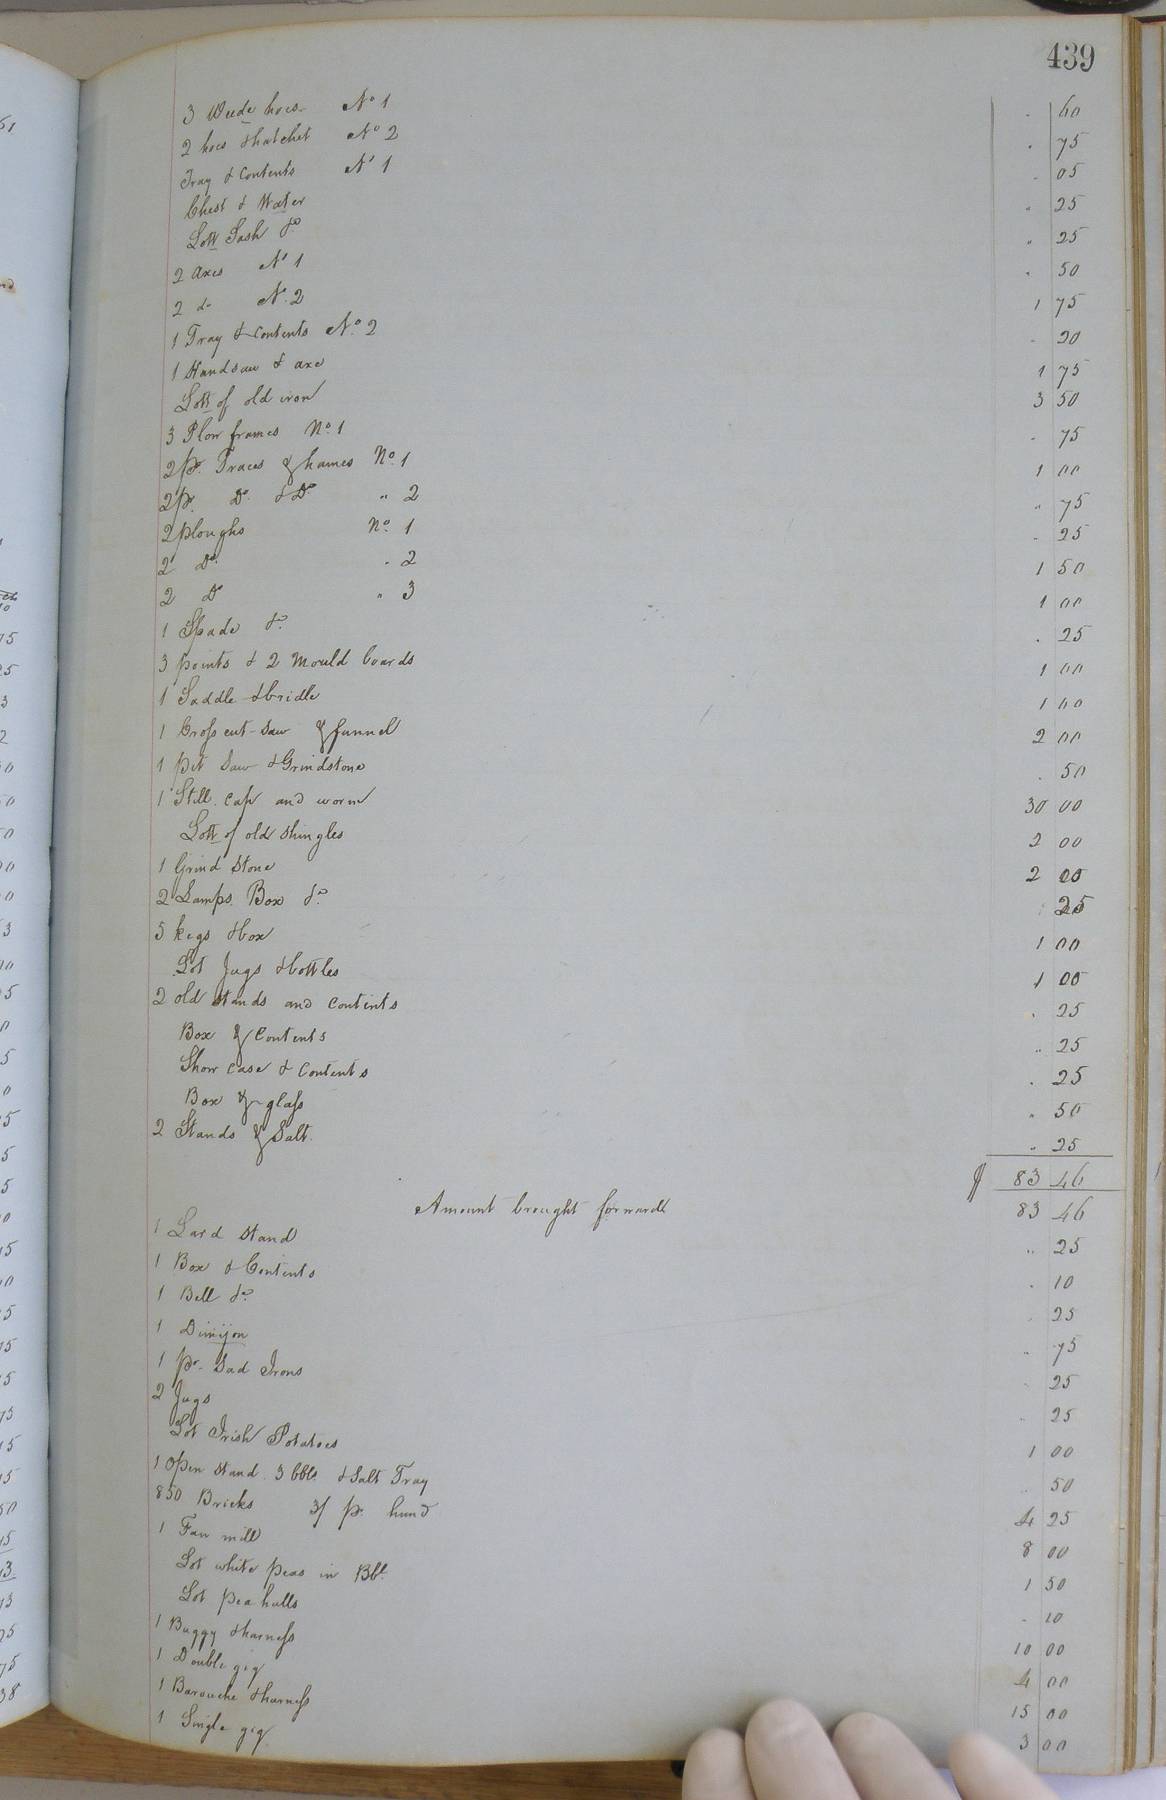 439
3 Weede hoes. No 1 . 60
2 hoes & hatchet No 2 . 75
Tray & Contents No 1 . 05
Chest & Water . 25
Lott Sash &c " 25
2 Axes No 1 . 50
2 do No. 2 1 75
1 Tray & Contents No. 2 . 20
1 Handsaw & axe 1 75
Lott of old iron 3 50
3 Plow frames No. 1 . 75
2 pr. Traces & hames No. 1 1 00
2 pr. Do. & Do " 2 " 75
2 ploughs No. 1 . 25
2 Do. " 2 1 50
2 Do " 3 1 00
1 Spade &c. . 25
3 points & 2 Mould boards 1 00
1 Saddle & bridle 1 00
1 Cross cut-saw & funnel 2 00
1 pit saw & Grindstone . 50
1 Still. cap and worm 30 00
Lott of old shingles 2 00
1 Grind Stone 2 00
2 Lamps. Box &c. . 25
5 kegs & box 1 00
Lot Jugs & bottles 1 00
2 old stands and contents . 25
Box & Contents " 25
Show case & Contents . 25
Box & glass " 50
2 Stands & Salt. " 25
$ 83 46
Amount brought forward 83 46
1 Lard stand " 25
1 Box & Contents . 10
1 Bell &c. . 25
1 Dimijon " 75
1 pr. Sad Irons . 25
2 Jugs " 25
Lot Irish Potatoes 1 00
1 Open Stand. 3 bbls. & Salt Tray " 50
850 Bricks 3/ pr. hund 4 25
1 Fan mill 8 00
Lot white peas in Bbl. 1 50
Lot pea hulls . 10
1 Buggy & harness 10 00
1 Double gig 4 00
1 Barouche & harness 15 00
1 Single gig 3 00